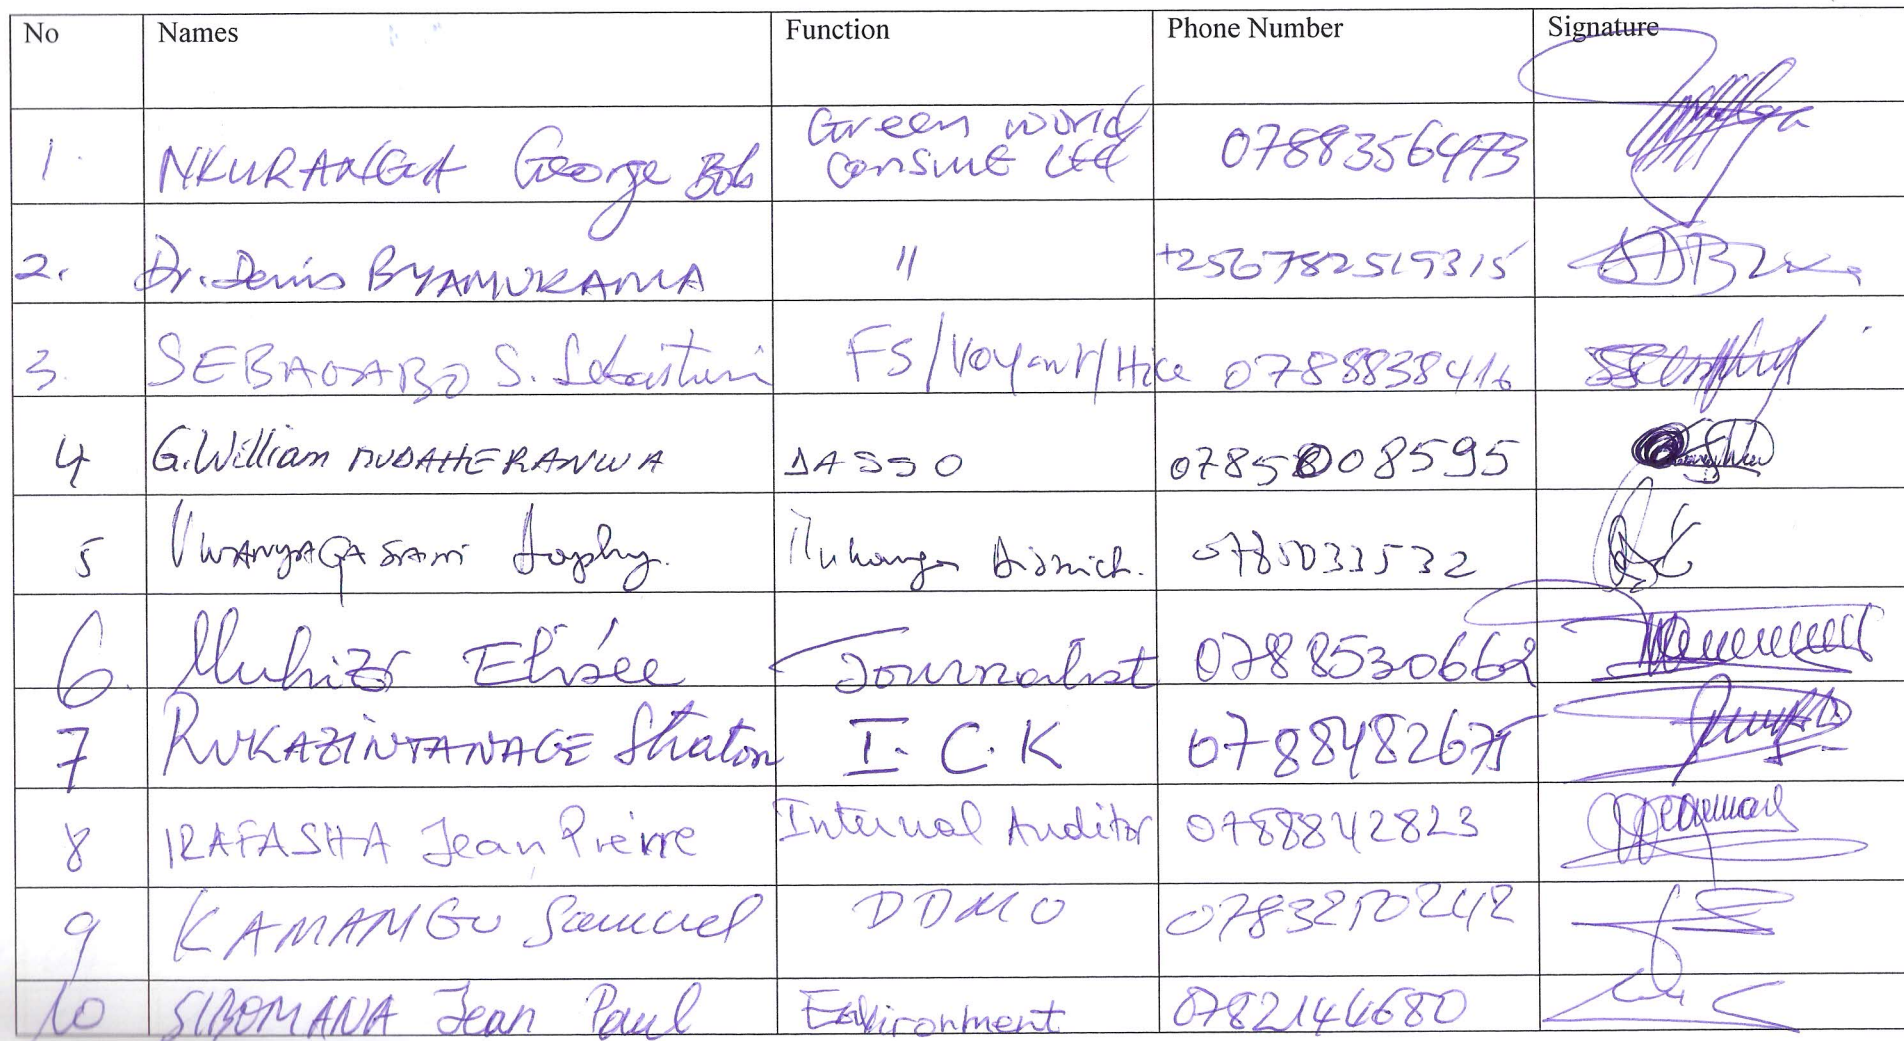 No Names Function Phone Number Signature
1. NKURANGA George Bob Green world consult Ltd 0788356473
2. Dr. Denis BYAMUKAMA " +256782519315
3. SEBAGABO S. Sebastien FS/Voyant/Hice 0788838416
4 G.William MUDAHERANWA DASSO 0785008595
5 UWANYAGASANI Sophy. Muhanga District. 0785033532
6. Muhizi Elisée Journalist 0788530662
7 RUKAZINTANAGE Straton I.C.K 0788482675
8 IRAFASHA Jean Pierre Internal Auditor 0788842823
9 KAMANGU Samuel DDMO 0783250242
10 SIBOMANA Jean Paul Environment 0782144680